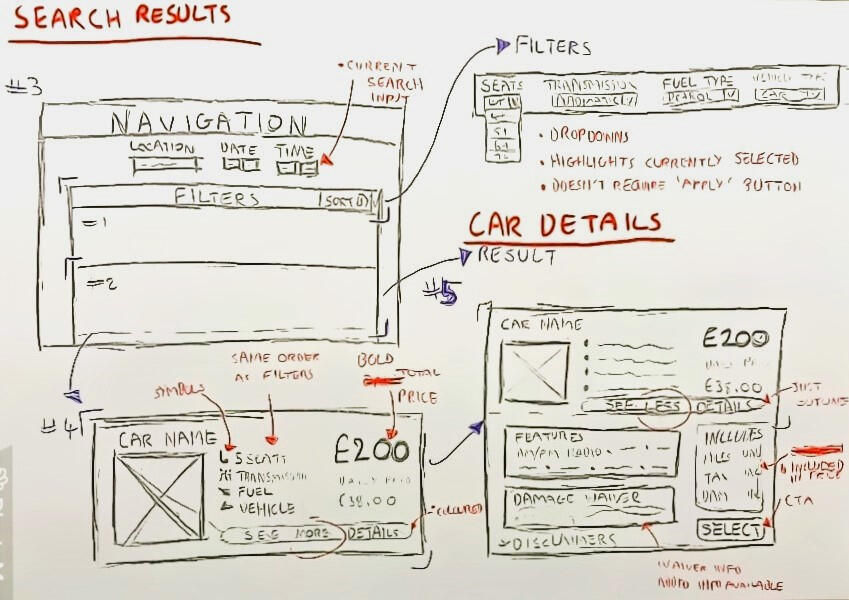 SEARCH RESULTS
#3
• CURRENT
SEARCH
INPUT
NAVIGATION
LOCATION DATE TIME
FILTERS SORT
=1
=2
FILTERS
SEATS TRANSMISSION FUEL TYPE VEHICLE TYPE
AUTOMATIC PETROL CAR
• DROPDOWNS
• HIGHLIGHTS CURRENTLY SELECTED
• DOESN'T REQUIRE 'APPLY' BUTTON
CAR DETAILS
RESULT
#5
#4
SYMBOLS
SAME ORDER
AS FILTERS
BOLD
TOTAL
PRICE
CAR NAME
5 SEATS
TRANSMISSION
FUEL
VEHICLE
£200
£38.00
SEE MORE DETAILS
COLOURED
CAR NAME
£200
£38.00
SEE LESS DETAILS
JUST
FEATURES
AM/FM RADIO
DAMAGE WAIVER
DISCLAIMERS
INCLUDES
MILES
TAX
DAM
SELECT
INCLUDED
IN PRICE
CTA
WAIVER INFO
ADDED INFO AVAILABLE